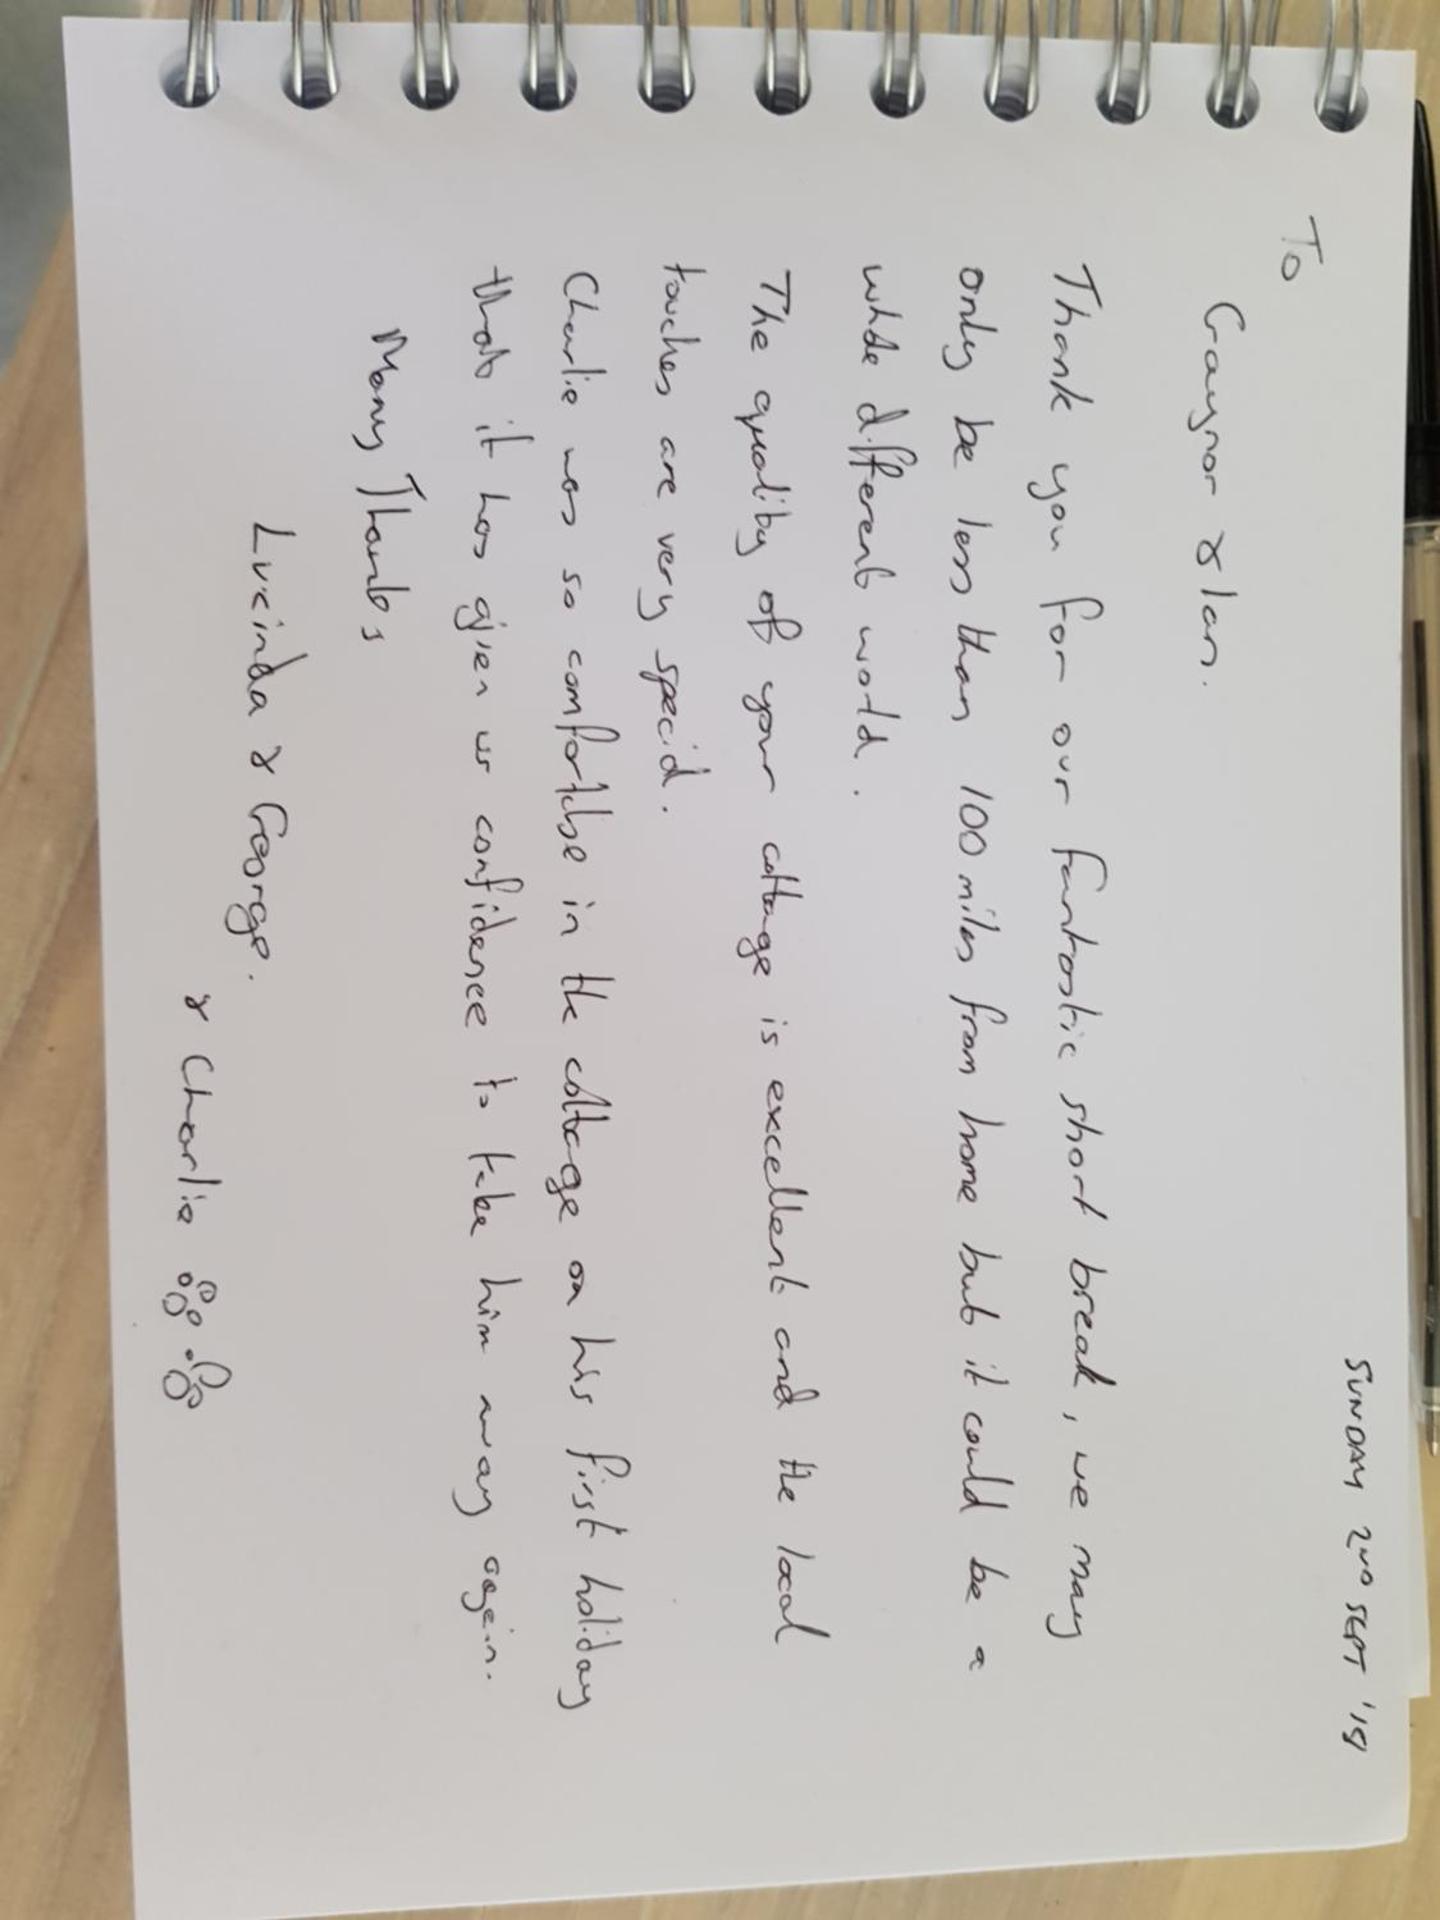 SUNDAY 2ND SEPT '18
To
Gaynor & Ian.
Thank you for our fantastic short break, we may
only be less than 100 miles from home but it could be a
whole different world.
The quality of your cottage is excellent and the local
touches are very special.
Charlie was so comfortable in the cottage on his first holiday
that it has given us confidence to take him away again.
Many Thanks
Lucinda & George.
& Charlie